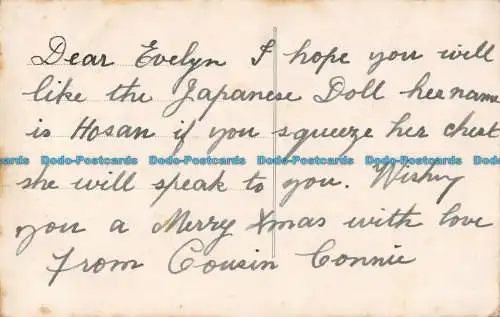 Dear Evelyn I hope you will
like the Japanese Doll her name
is Hosan if you squeeze her chest
Dodo-Postcards Dodo-Postcards Dodo-Postcards Dodo-Postcards
she will speak to you. Wishing
you a Merry Xmas with love
From Cousin Connie